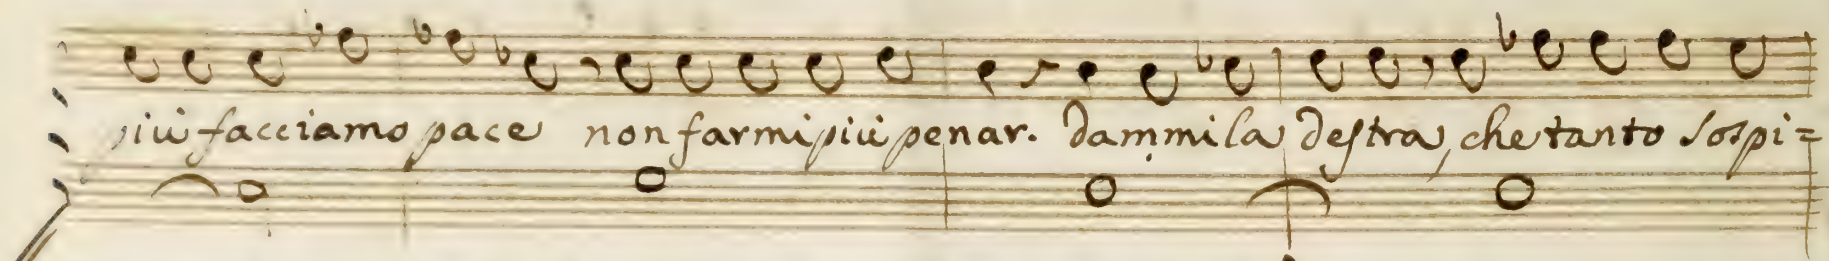 più facciamo pace non farmi più penar. dammi la deſtra, che tanto soſpi=